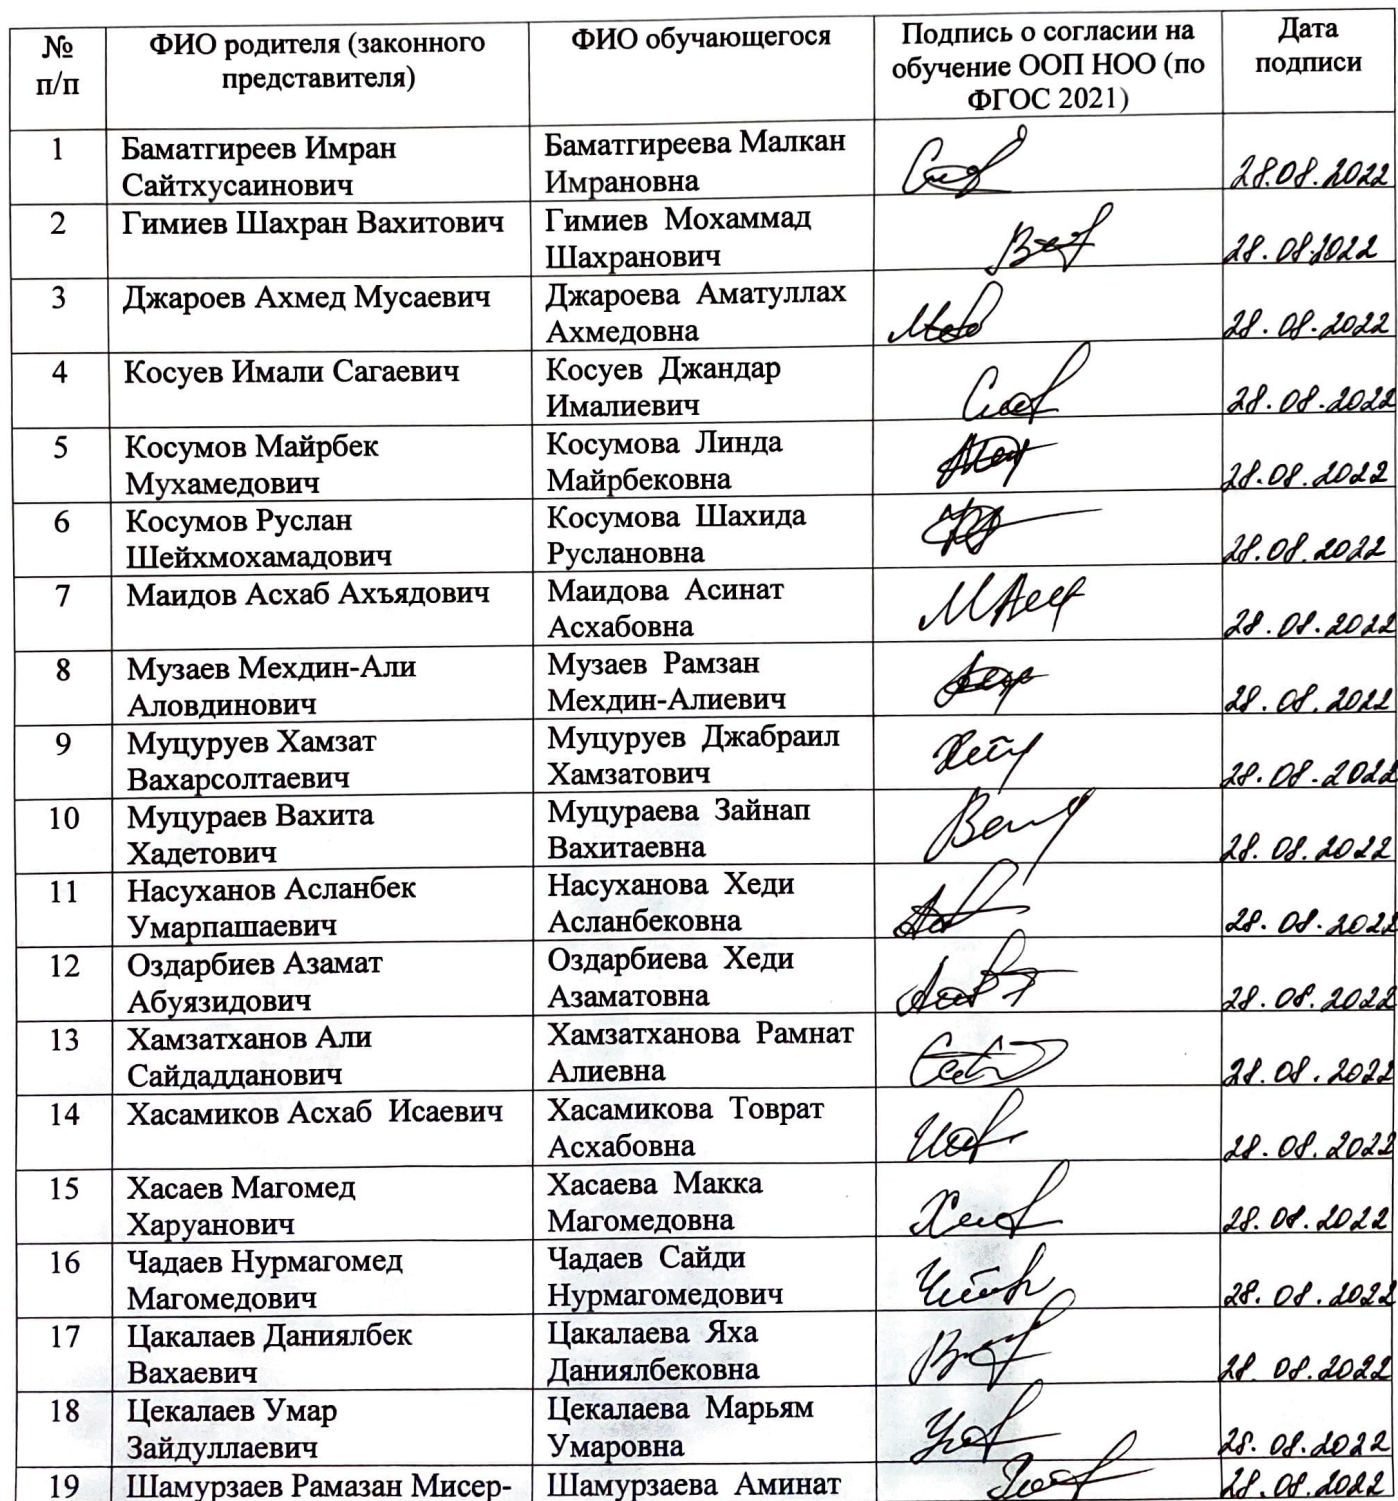 № п/п ФИО родителя (законного представителя) ФИО обучающегося Подпись о согласии на обучение ООП НОО (по ФГОС 2021) Дата подписи
1 Баматгиреев Имран Сайтхусаинович Баматгиреева Малкан Имрановна 28.08.2022
2 Гимиев Шахран Вахитович Гимиев Мохаммад Шахранович 28.08.2022
3 Джароев Ахмед Мусаевич Джароева Аматуллах Ахмедовна 28.08.2022
4 Косуев Имали Сагаевич Косуев Джандар Ималиевич 28.08.2022
5 Косумов Майрбек Мухамедович Косумова Линда Майрбековна 28.08.2022
6 Косумов Руслан Шейхмохамадович Косумова Шахида Руслановна 28.08.2022
7 Маидов Асхаб Ахъядович Маидова Асинат Асхабовна 28.08.2022
8 Музаев Мехдин-Али Аловдинович Музаев Рамзан Мехдин-Алиевич 28.08.2022
9 Муцуруев Хамзат Вахарсолтаевич Муцуруев Джабраил Хамзатович 28.08.2022
10 Муцураев Вахита Хадетович Муцураева Зайнап Вахитаевна 28.08.2022
11 Насуханов Асланбек Умарпашаевич Насуханова Хеди Асланбековна 28.08.2022
12 Оздарбиев Азамат Абуязидович Оздарбиева Хеди Азаматовна 28.08.2022
13 Хамзатханов Али Сайдадданович Хамзатханова Рамнат Алиевна 28.08.2022
14 Хасамиков Асхаб Исаевич Хасамикова Товрат Асхабовна 28.08.2022
15 Хасаев Магомед Харуанович Хасаева Макка Магомедовна 28.08.2022
16 Чадаев Нурмагомед Магомедович Чадаев Сайди Нурмагомедович 28.08.2022
17 Цакалаев Даниялбек Вахаевич Цакалаева Яха Даниялбековна 28.08.2022
18 Цекалаев Умар Зайдуллаевич Цекалаева Марьям Умаровна 28.08.2022
19 Шамурзаев Рамазан Мисер- Шамурзаева Аминат 28.08.2022